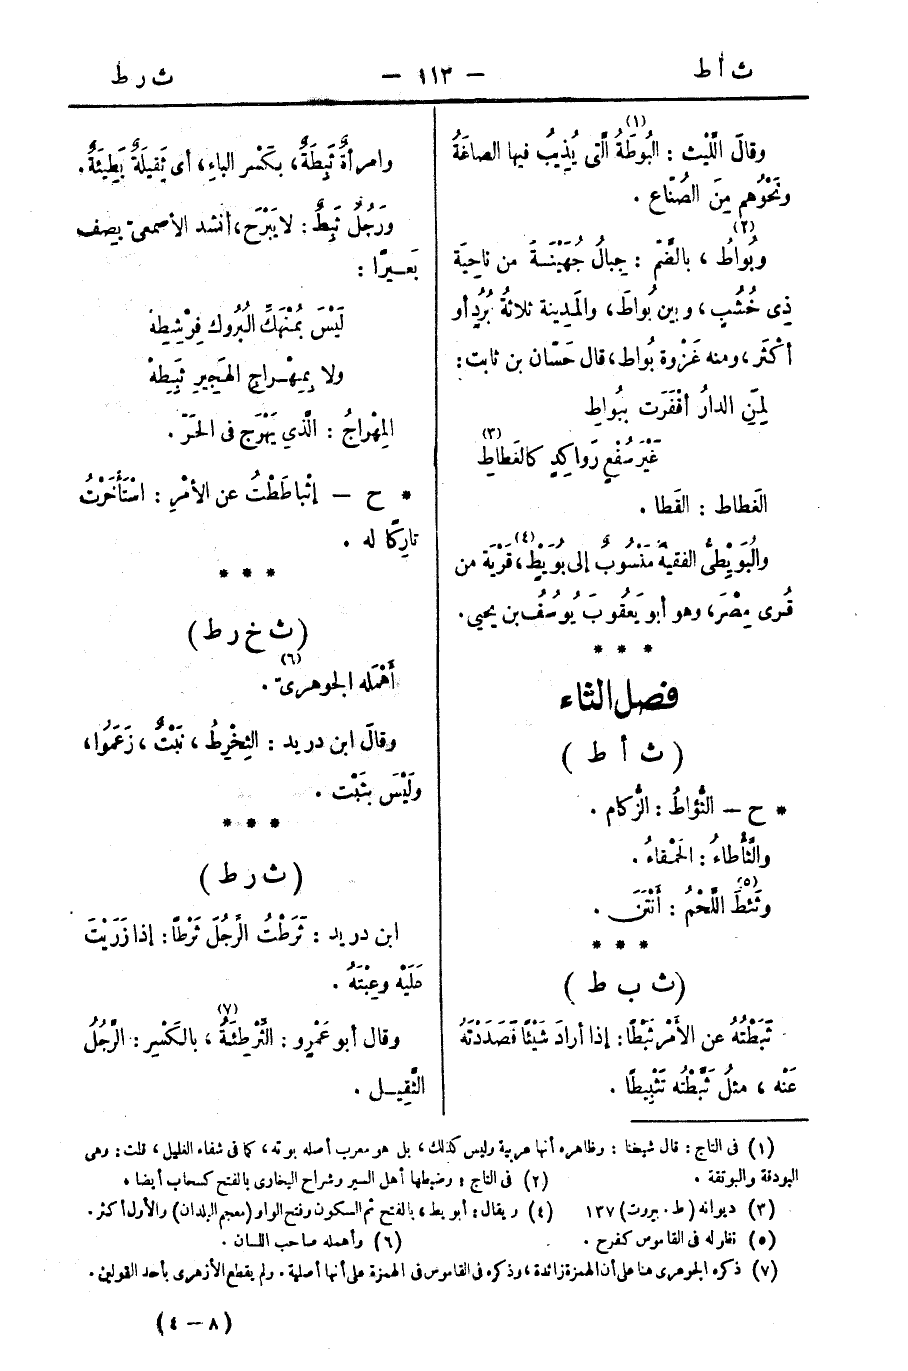 ث أ ط
— ١١٣ —
ث ر ط
وقال اللَّيْث : البُوطَةُ(١) الَّتى يُذِيبُ فيها الصاغَةُ
ونَحْوُهم مِنَ الصُّنّاع .
وبُواطُ(٢) ، بالضَّمّ : جِبالُ جُهَيْنَـةَ من ناحِيَة
ذِى خُشُبٍ ، وبين بُواطَ ، والمَدِينة ثلاثةُ بُرُدٍ أو
أكْثَر ، ومنه غَزْوة بُواط ، قال حَسّان بن ثابت :
لِمَنِ الدارُ أقْفَرَت ببُواطِ
غَيْرَ سُفْعٍ رَواكِدٍ كالغَطاطِ(٣)
الغَطاط : القَطا .
والبُوَيْطِىُّ الفقيهُ مَنْسُوبٌ إلى بُوَيْطٍ(٤) ، قَرْيَة من
قُرى مِصْرَ ، وهو أبو يَعْقُوبَ يُوسُفُ بن يحيى .
* * *
فصل الثاء
( ث أ ط )
* ح — الثُّؤاطُ : الزُّكام .
والثَّأْطاءُ : الحَمْقاءُ .
وثَئِطَ(٥) اللَّحْمُ : أَنْتَنَ .
* * *
( ث ب ط )
ثَبَطْتُهُ عن الأَمْرِ ثَبْطًا : إذا أرادَ شَيْئًا فَصَدَدْتَهُ
عَنْه ، مثلُ ثَبَّطْتُه تَثْبِيطًا .
وامرأةٌ ثَبِطَةٌ ، بكَسْر الباءِ ، أى ثَقِيلَةٌ بَطِيئَةٌ .
ورَجُلٌ ثَبِطٌ : لا يَبْرَح ، أنشد الأصمعىّ يصف
بَعـيرًا :
لَيْسَ بمُنْهَكِّ البُرُوك فِرْشِطِهْ
ولا بِمِهْـراجِ الهَجِيرِ ثَبِطِهْ
المِهْراجُ : الَّذى يَهْرَج فى الحَرّ .
* ح — إثْباطَطْتُ عن الأَمْرِ : اسْتَأْخَرْتُ
تارِكًا له .
* * *
( ث خ ر ط )
أَهْمَله الجوهرىّ(٦) .
وقال ابن دريد : الثِخْرِطُ ، نَبْتٌ ، زَعَمُوا ،
ولَيْسَ بثَبْت .
* * *
( ث ر ط )
ابن دريد : ثَرَطْتُ الرَّجُلَ ثَرْطًا : إذا زَرَيْتَ
عَلَيْه وعِبْتَهُ .
وقال أبو عَمْرٍو : الثِّرْطِئَةُ(٧) ، بالكَسْرِ : الرَّجُلُ
الثَّقِيـل .
(١) فى التاج : قال شيخنا : وظاهره أنها عربية وليس كذلك ، بل هو معرب أصله بوته ، كما فى شفاء الغليل ، قلت : وهى
البودقة والبوتقة . (٢) فى التاج : وضبطها أهل السير وشراح البخارى بالفتح كسحاب أيضا .
(٣) ديوانه ( ط . بيروت ) ١٣٧ (٤) ويقال : أبويط ، بالفتح ثم السكون وفتح الواو (معجم البلدان) والأول أكثر .
(٥) نظر له فى القاموس كفرح . (٦) وأهمله صاحب اللسان .
(٧) ذكره الجوهرى هنا على أن الهمزة زائدة ، وذكره فى القاموس فى الهمزة على أنها أصلية . ولم يقطع الأزهرى بأحد القولين .
(٨ — ٤)